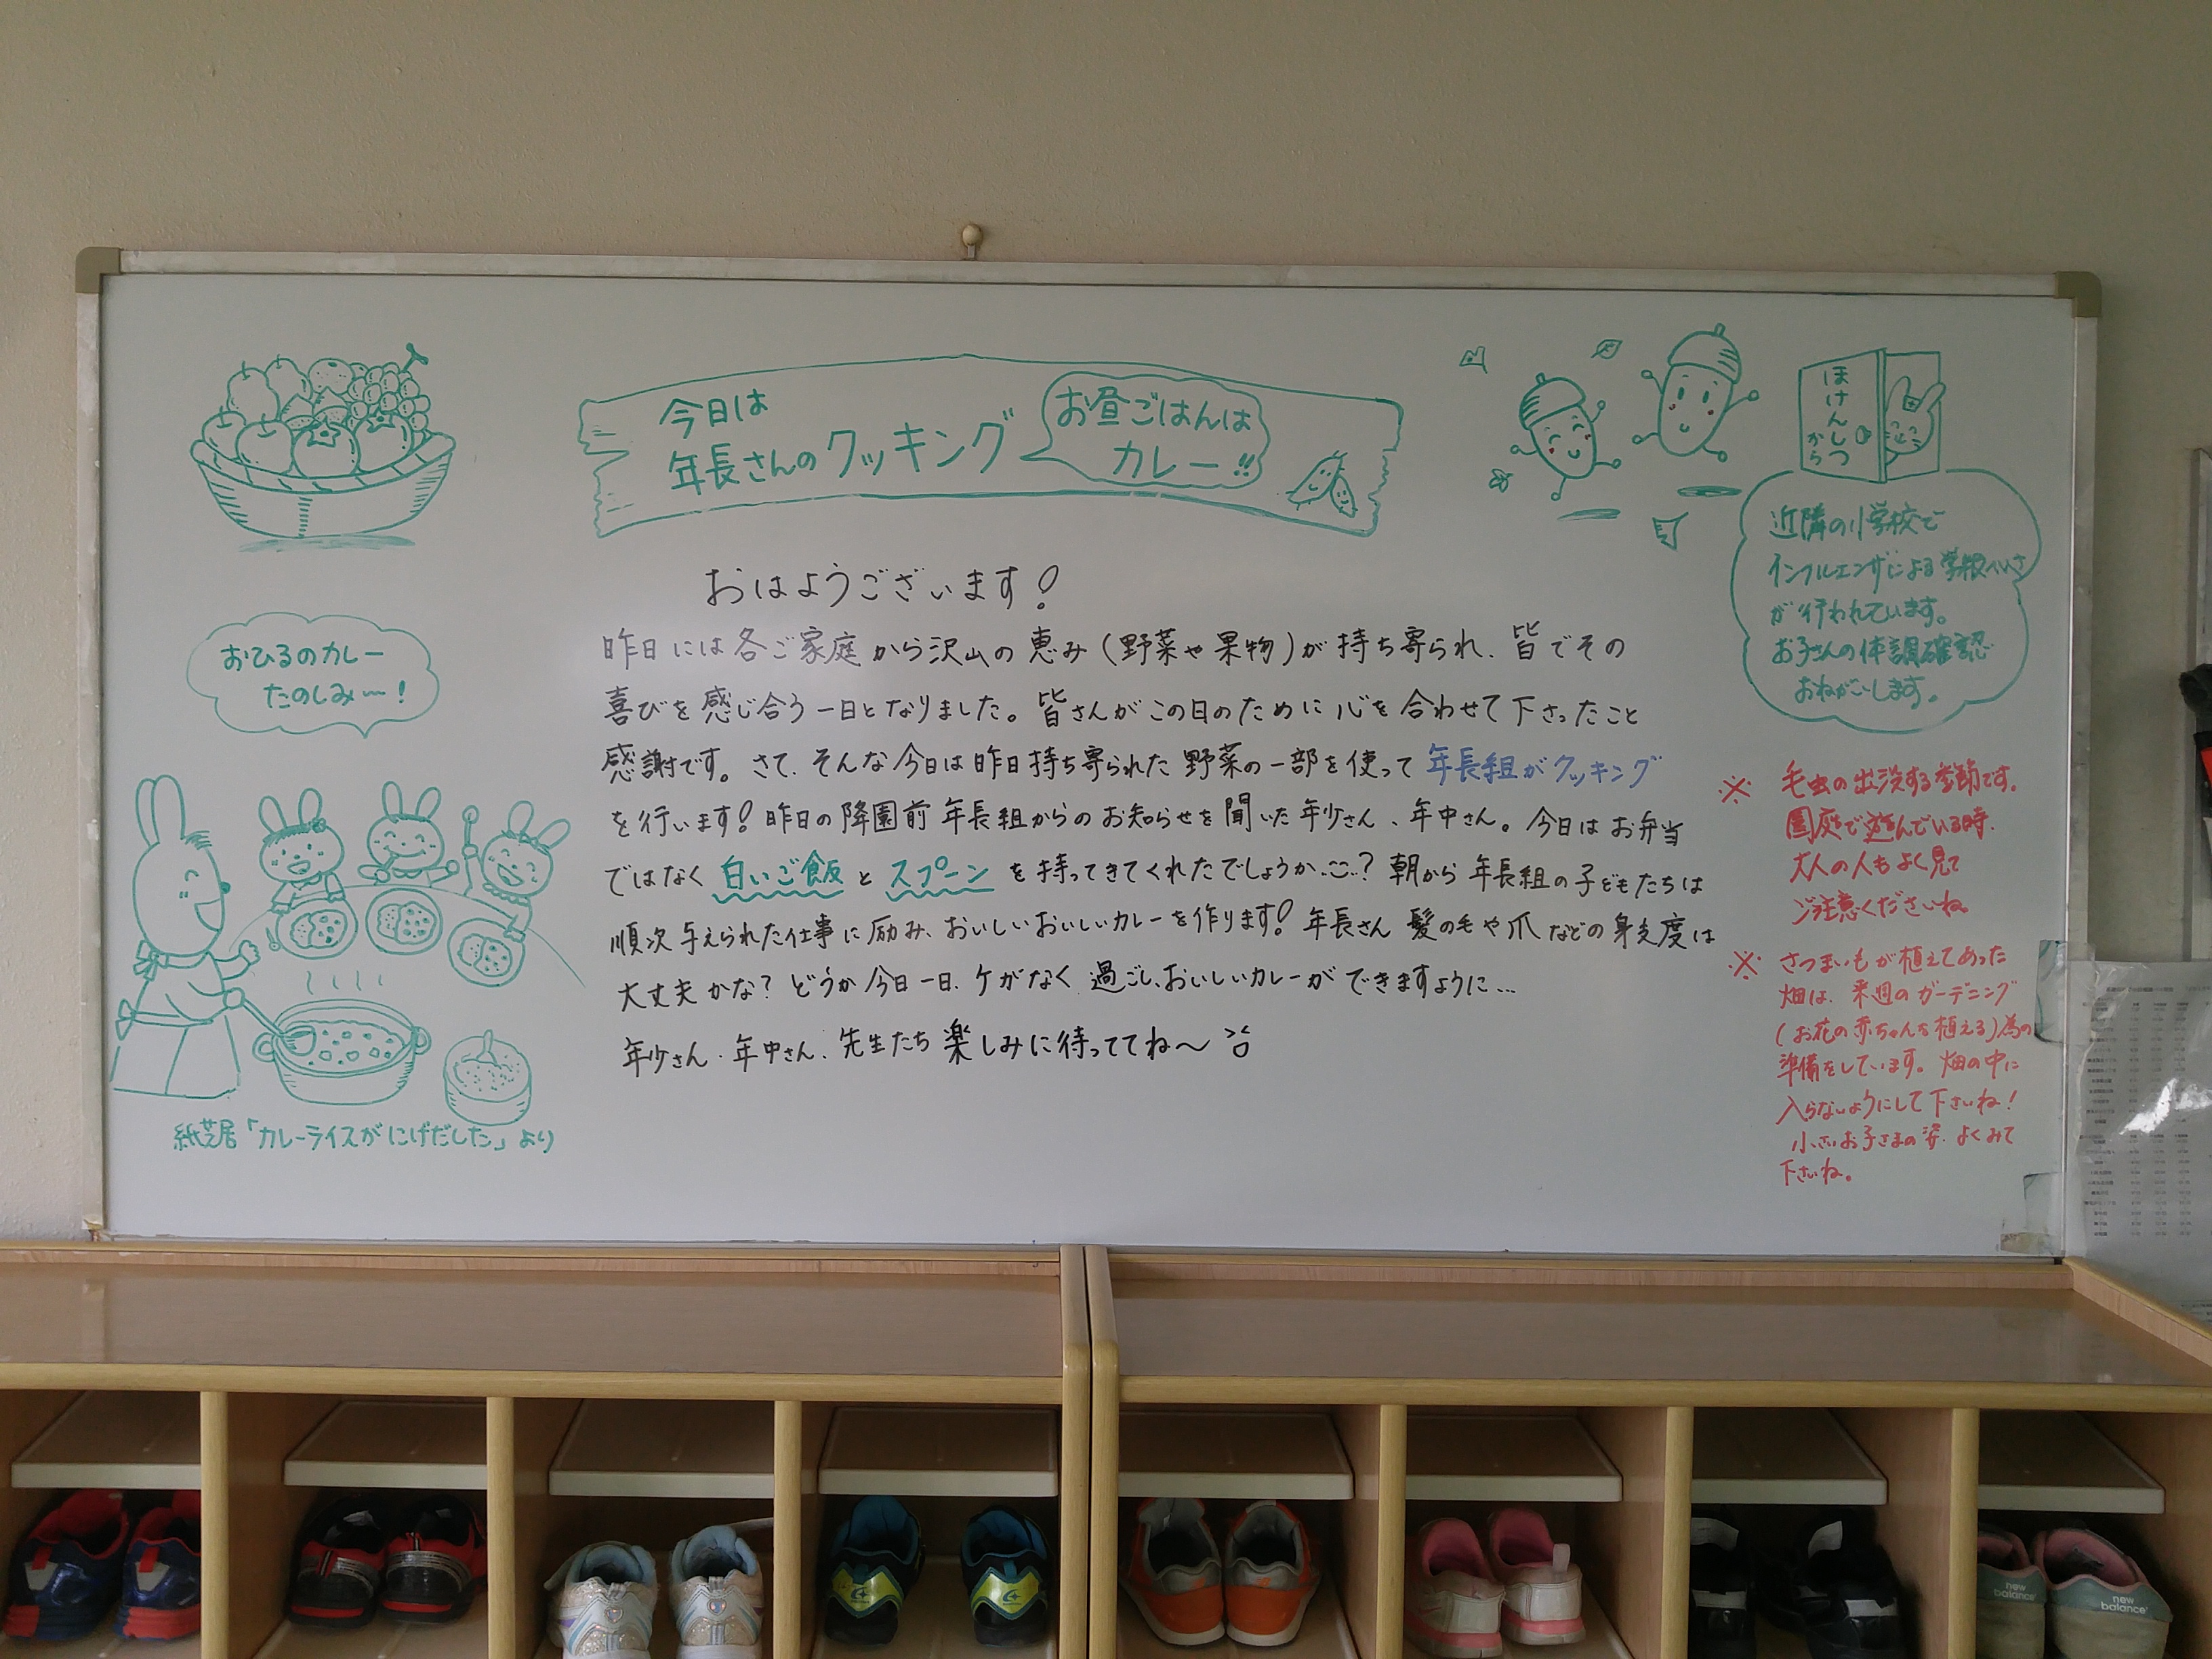 今日は
年長さんのクッキング
お昼ごはんは
カレー!!
おはようございます!
昨日には各ご家庭から沢山の恵み(野菜や果物)が持ち寄られ、皆でその
喜びを感じ合う一日となりました。皆さんがこの日のために心を合わせて下さったこと
感謝です。さて、そんな今日は昨日持ち寄られた野菜の一部を使って年長組がクッキング
を行います!昨日の降園前年長組からのお知らせを聞いた年少さん、年中さん。今日はお弁当
ではなく白いご飯とスプーンを持ってきてくれたでしょうか…?朝から年長組の子どもたちは
順次与えられた仕事に励み、おいしいおいしいカレーを作ります!年長さん髪の毛や爪などの身支度は
大丈夫かな?どうか今日一日、ケガなく過ごし、おいしいカレーができますように…
年少さん、年中さん、先生たち楽しみに待っててね〜
おひるのカレー
たのしみ〜!
紙芝居「カレーライスがにげだした」より
ほけんしつ
から
近隣の小学校で
インフルエンザによる学級へいさ
が行われています。
お子さんの体調確認
おねがいします。
※ 毛虫の出没する季節です。
園庭で遊んでいる時、
大人の人もよく見て
ご注意くださいね。
※ さつまいもが植えてあった
畑は、来週のガーデニング
(お花の赤ちゃんを植える)為の
準備をしています。畑の中に
入らないようにして下さいね!
小さいお子さまの姿、よくみて
下さいね。
new balance
new balance